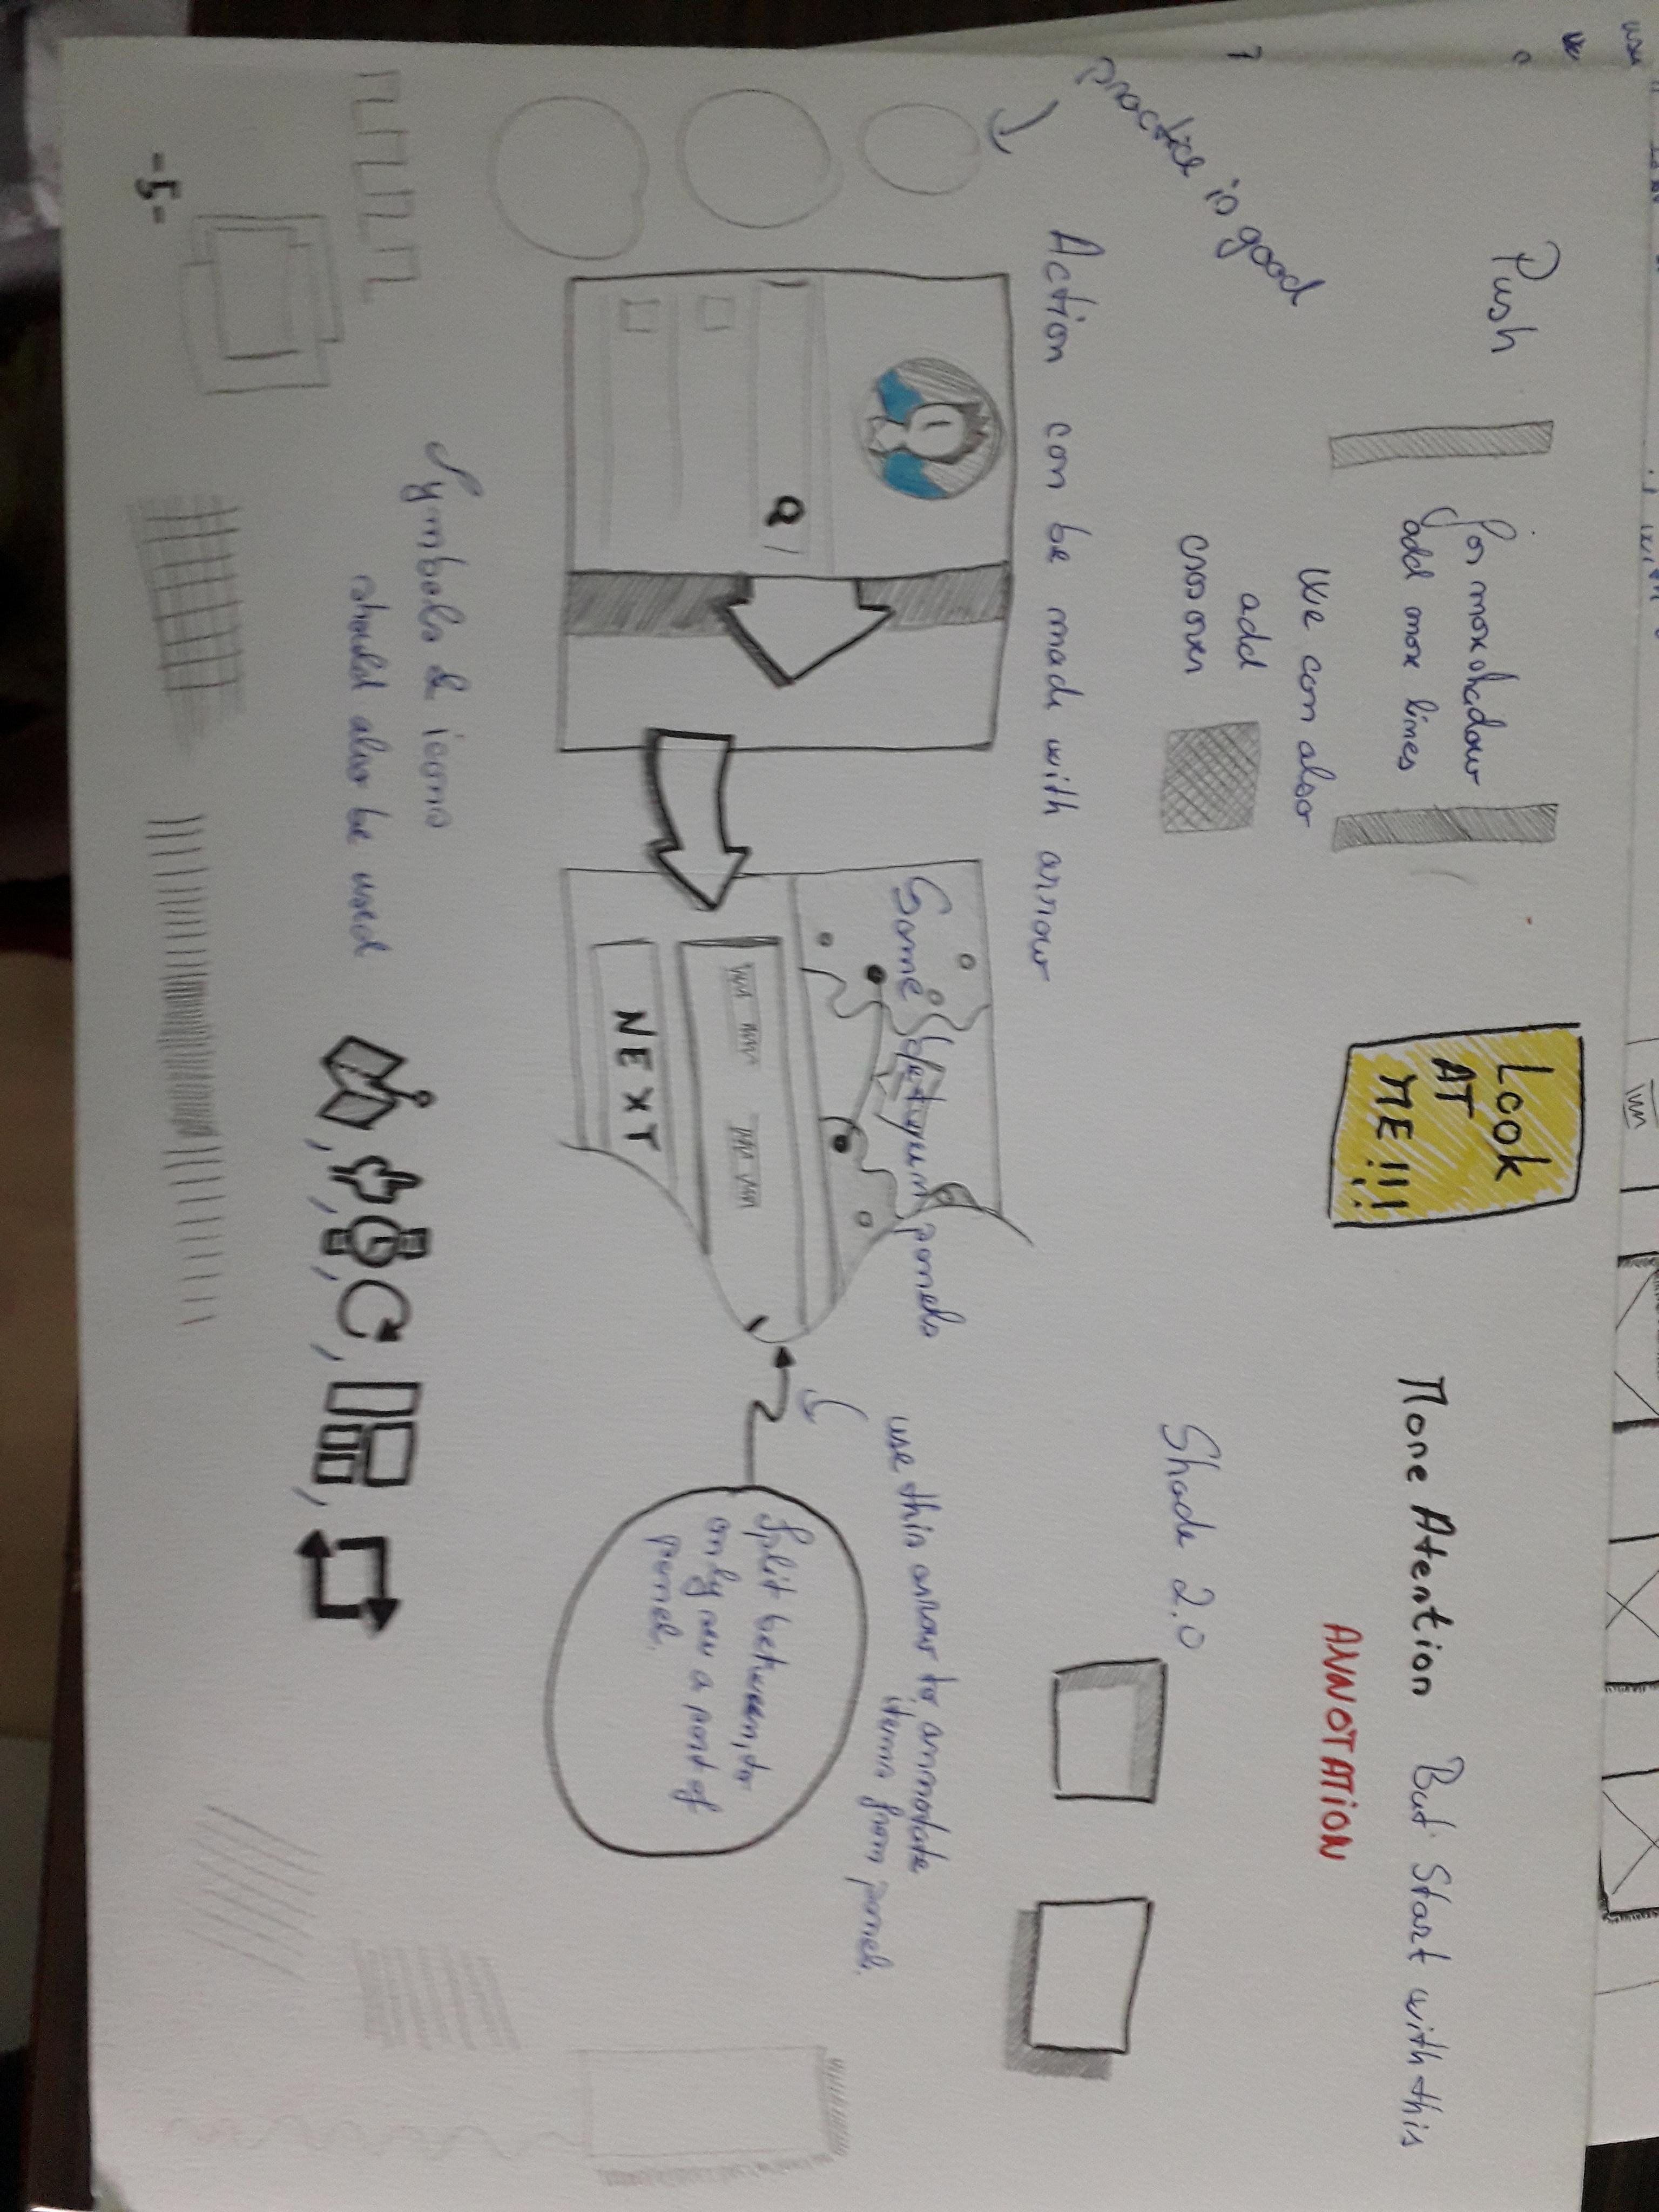 Push
for more shadow
add more lines
We can also
add
crosover
LOOK
AT
ME!!!!
More Atention
But Start with this
ANNOTATION
practice is good
Shade 2.0
Action can be made with arrow
Some between panels
NEXT
use this arrow to annotate
items from panel.
Split between, to
only see a part of
panel.
Symbols & icons
should also be used
-5-